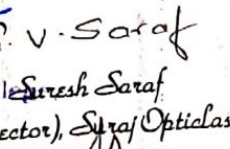 V. Saraf
Suresh Saraf
ector), Syraj Opticlas